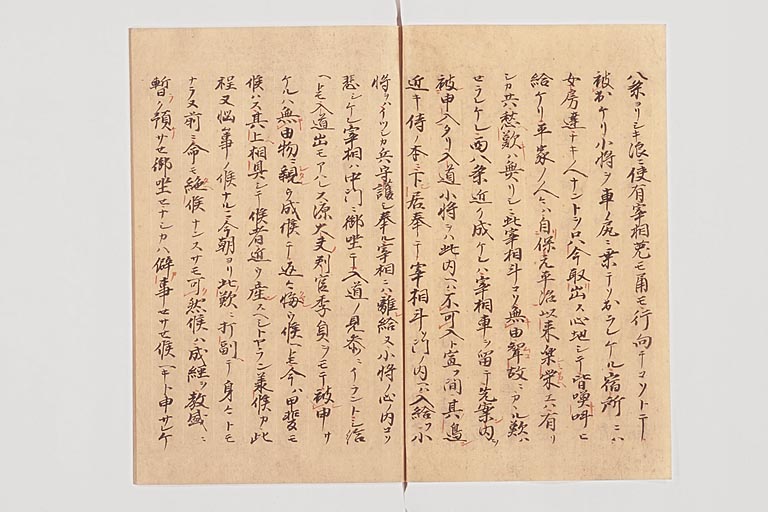 八条ヨリシキ浪ニ使有宰相兎モ角モ行向テコソトテ
被出ケリ小将ヲ車ノ尻ニ乗テソ出ラレケル宿所ニハ
女房達ナキ人ナントヲ只今取出ス心地シテ皆喚叫ヒ
給ケリ平家ノ人々ハ自保元平治以来楽栄ハ有リ
シカ共愁歎ハ無リシニ此宰相斗コソ無由聟故ニカヽル歎ハ
セラレケレ西八条近ク成ケレハ宰相車ヲ留テ先案内ヲ
被申入タリ入道小将ヲハ此内ヘハ不可入ト宣フ間其邊
近キ侍ノ本ニ下居奉テ宰相斗ソ門ノ内ヘハ入給フ小
将ヲハイツシカ兵守護シ奉ル宰相ニハ離給ヌ小将ノ心ノ内コソ
悲シケレ宰相ハ中門ニ御坐テ入道ノ見参ニイラントシ給
ヘトモ入道出モアハレス源大夫判官季貞ヲモテ被申
ケルハ無由物ニ親ク成候テ返々悔ク候ヘトモ今ハ甲斐モ
候ハス其上相具シテ候者近ク産スヘシトヤラン承候カ此
程又悩事ノ候ナルニ今朝ヨリ此歎ニ打副テ身々トモ
ナラヌ前ニ命モ絶候ナンスサモ可然候ハ成経ヲ教盛ニ
暫ク預サセ御坐セナシカハ僻事セサセ候ヘキト申サレケ